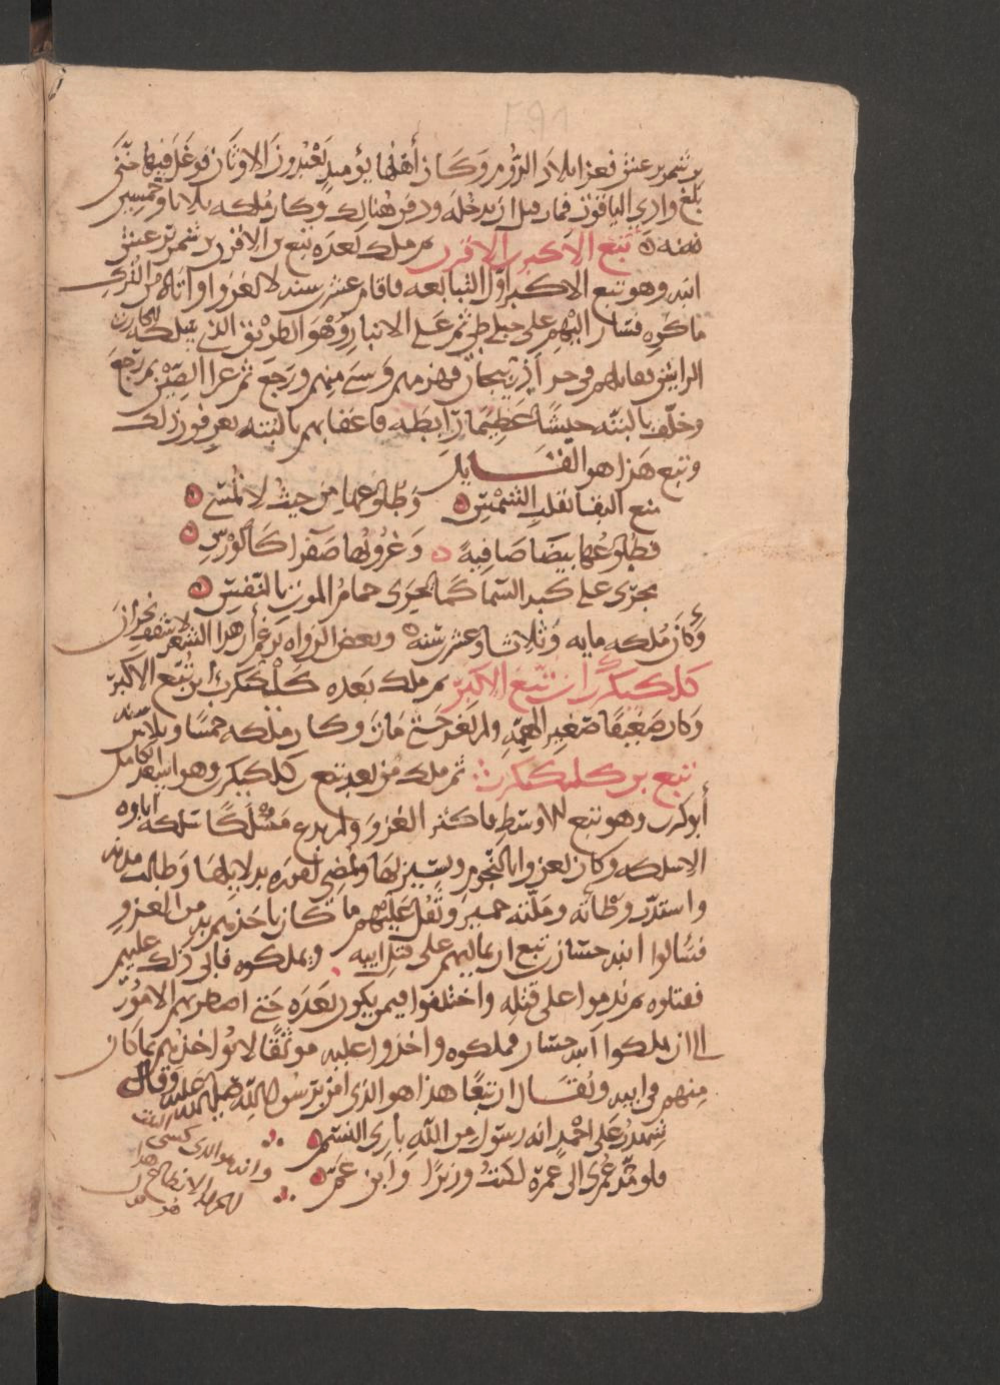 بن شمر يرعش فغزا بلاد الروم وكان أهلها يومئذ يعبدون الاوثان فوغل فيها حتى
بلغ وادي الياقوت فمات قبل ان يدخله ودفن هنالك وكان ملكه ثلاثا وخمسين
سنه تبع الاكبر بن الاقرن ثم ملك بعده تبع بن الاقرن بن شمر يرعش
ابنه وهو تبع الاكبر اول التبابعه فاقام عشرين سنه لا يغزو واتاه من الترك
ما كره فسار اليهم على جبلي طي ثم على الانبار وهو الطريق الذي سلكه الحارث
الرايش فقاتلهم في حد آذربيجان فهزمهم وسبى منهم ورجع ثم غزا الصين ثم رجع
وخلف بالتبت جيشا عظيما رابطه فاعقابهم بالتبت يعرفون ذلك
وتبع هذا هو القايل
منع البقا تقلب الشمس وطلوعها من حيث لا تمسي
فطلوعها بيضا صافية وغروبها صفرا كالورس
تجري على كبد السما كما يجري حمام الموت بالنفس
وكان ملكه مايه وثلاثا وعشر سنه وبعض الرواه يزعم أن هذا الشعر لاسقف نجران
كلكيكرب ابن تبع الاكبر ثم ملك بعده كلكيكرب ابن تبع الاكبر
وكان ضعيفا صغير الهمة ولم يغز حتى مات وكان ملكه خمسا وثلاثين سنه
تبع بن كليكيكرب ثم ملك من بعده تبع بن كلكيكرب وهو اسعد الكامل
أبو كرب وهو تبع الاوسط فاكثر الغزو ولم يدع مسلكا سلكه آباوه
الا سلكه وكان يغزوا بالنجوم ويسير بها ويمضي اموره بدلايلها وطالت مدته
واشتدت وطأته وملته حمير وثقل عليهم ما كان ياخذهم به من الغزو
فسالوا ابنه حسان بن تبع ان يماليهم على قتل ابيه ويملكوه فابى ذلك عليهم
فقتلوه ثم ندموا على قتله واختلفوا فيمن يكون بعده حتى اضطرهم الامور
الى ان ملكوا ابنه حسان فملكوه واخذوا عليه موثقا لا يؤاخذهم بما كان
منهم في ابيه ويقال ان تبعا هذا هو الذي امن برسول الله صلى الله عليه وقال
شهدت على احمد انه رسول من الله باري النسم
فلو مد عمري الى عمره لكنت وزيرا وابن عم
وانه هو الذي كسى البيت